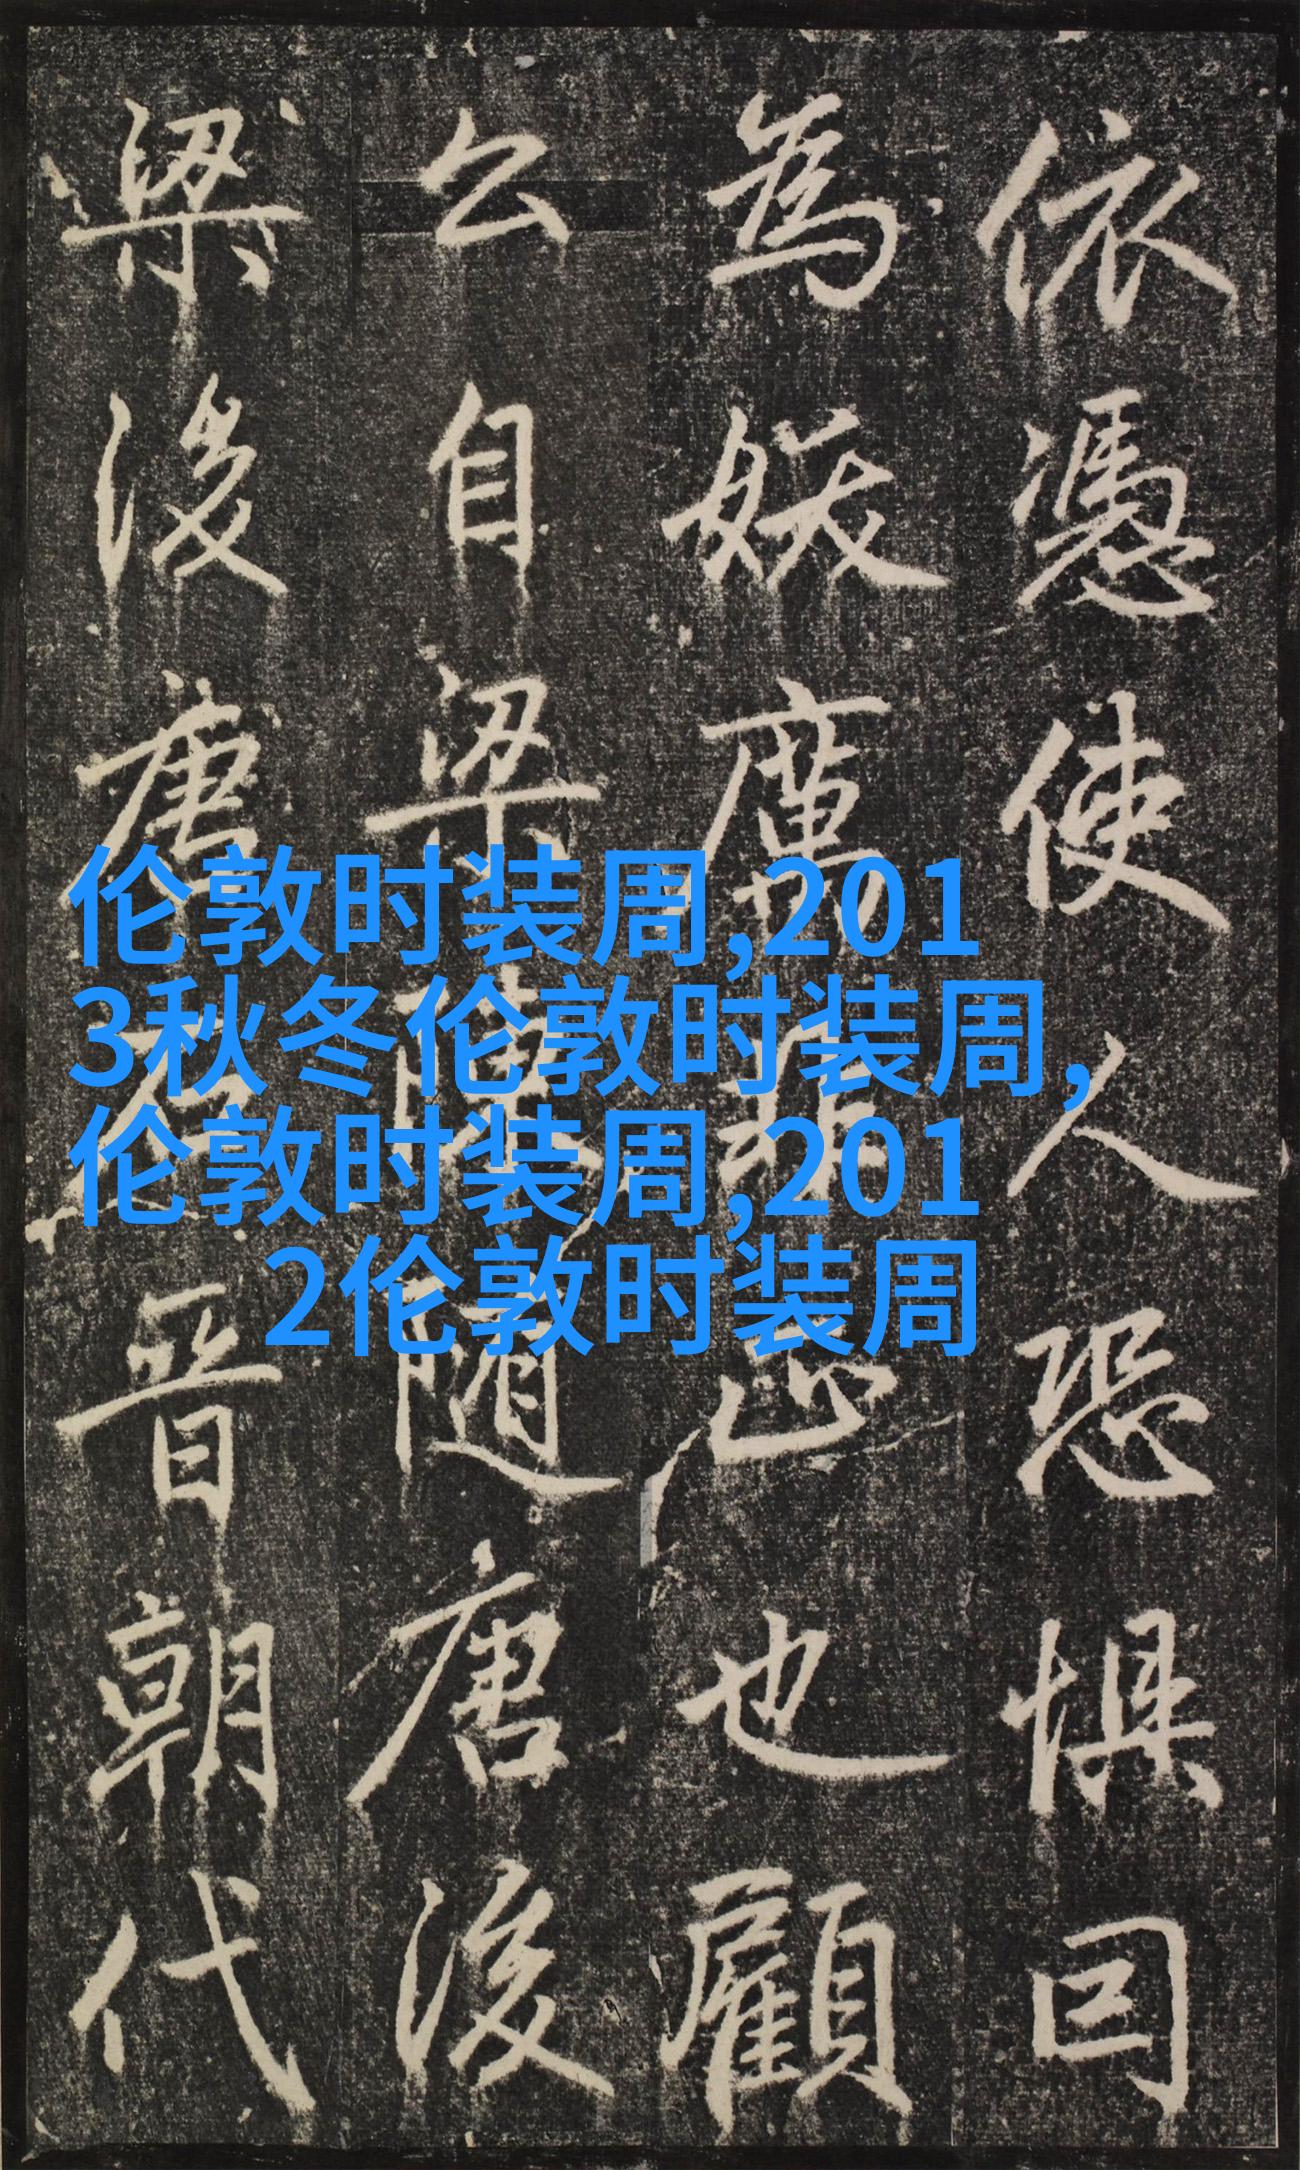 依憑使人恐惧囙
為妖厲非止也顧
公自梁陳隨唐後
梁後唐石晉朝代
伦敦时装周,201
3秋冬伦敦时装周,
伦敦时装周,201
2伦敦时装周